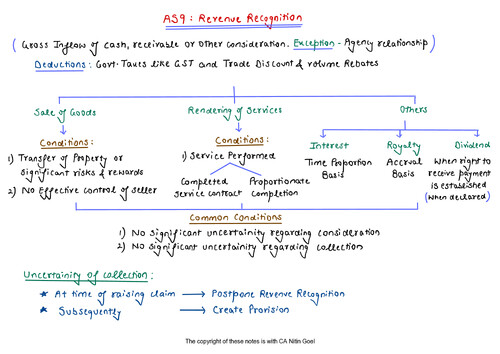 AS9 : Revenue Recognition
(Gross Inflow of cash, receivable or other consideration. Exception - Agency relationship)
Deductions : Govt. Taxes like GST and Trade Discount & volume Rebates
Sale of Goods
Rendering of Services
Others
Conditions :
1) Transfer of Property or
significant risks & rewards
2) No Effective control of seller
Conditions :
1) Service Performed
Completed
service contract
Proportionate
completion
Interest
Time Proportion
Basis
Royalty
Accrual
Basis
Dividend
When right to
receive payment
is established
(when declared)
Common Conditions
1) No significant uncertainty regarding consideration
2) No significant uncertainty regarding collection
Uncertainty of collection :
★ At time of raising claim → Postpone Revenue Recognition
★ Subsequently → Create Provision
The copyright of these notes is with CA Nitin Goel